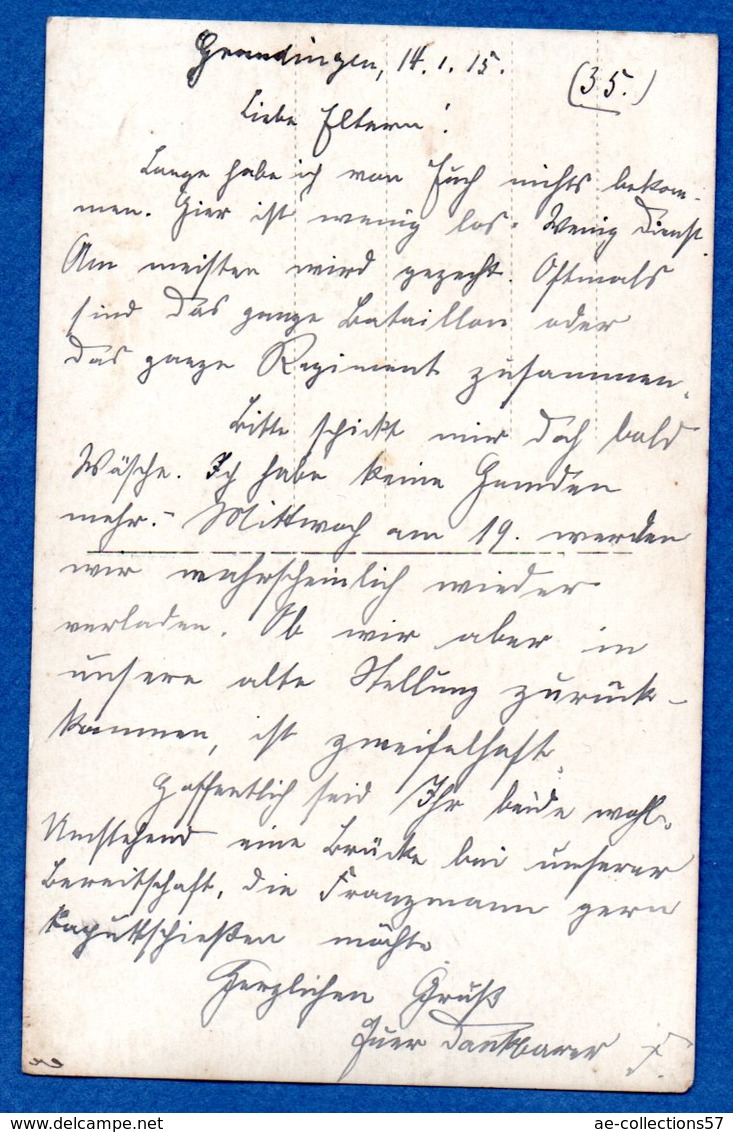 Grendingen, 14.1.15.
(35.)
Liebe Eltern!
Lange habe ich von Euch nichts bekom-
men. Hier ist wenig los. Wenig Dienst.
Am meisten wird gezecht. Oftmals
sind das ganze Bataillon oder
das ganze Regiment zusammen.
Bitte schickt mir doch bald
Wäsche. Ich habe keine Hemden
mehr. - Mittwoch am 19. werden
wir wahrscheinlich wieder
verladen. Ob wir aber in
unsere alte Stellung zurück-
kommen, ist zweifelhaft.
Hoffentlich seid Ihr beide wohl.
Umstehend eine Brücke bei unserer
Bereitschaft, die Franzmann gern
kaputtschießen möchte
Herzlichen Gruß
Euer dankbarer F.
ae-collections57